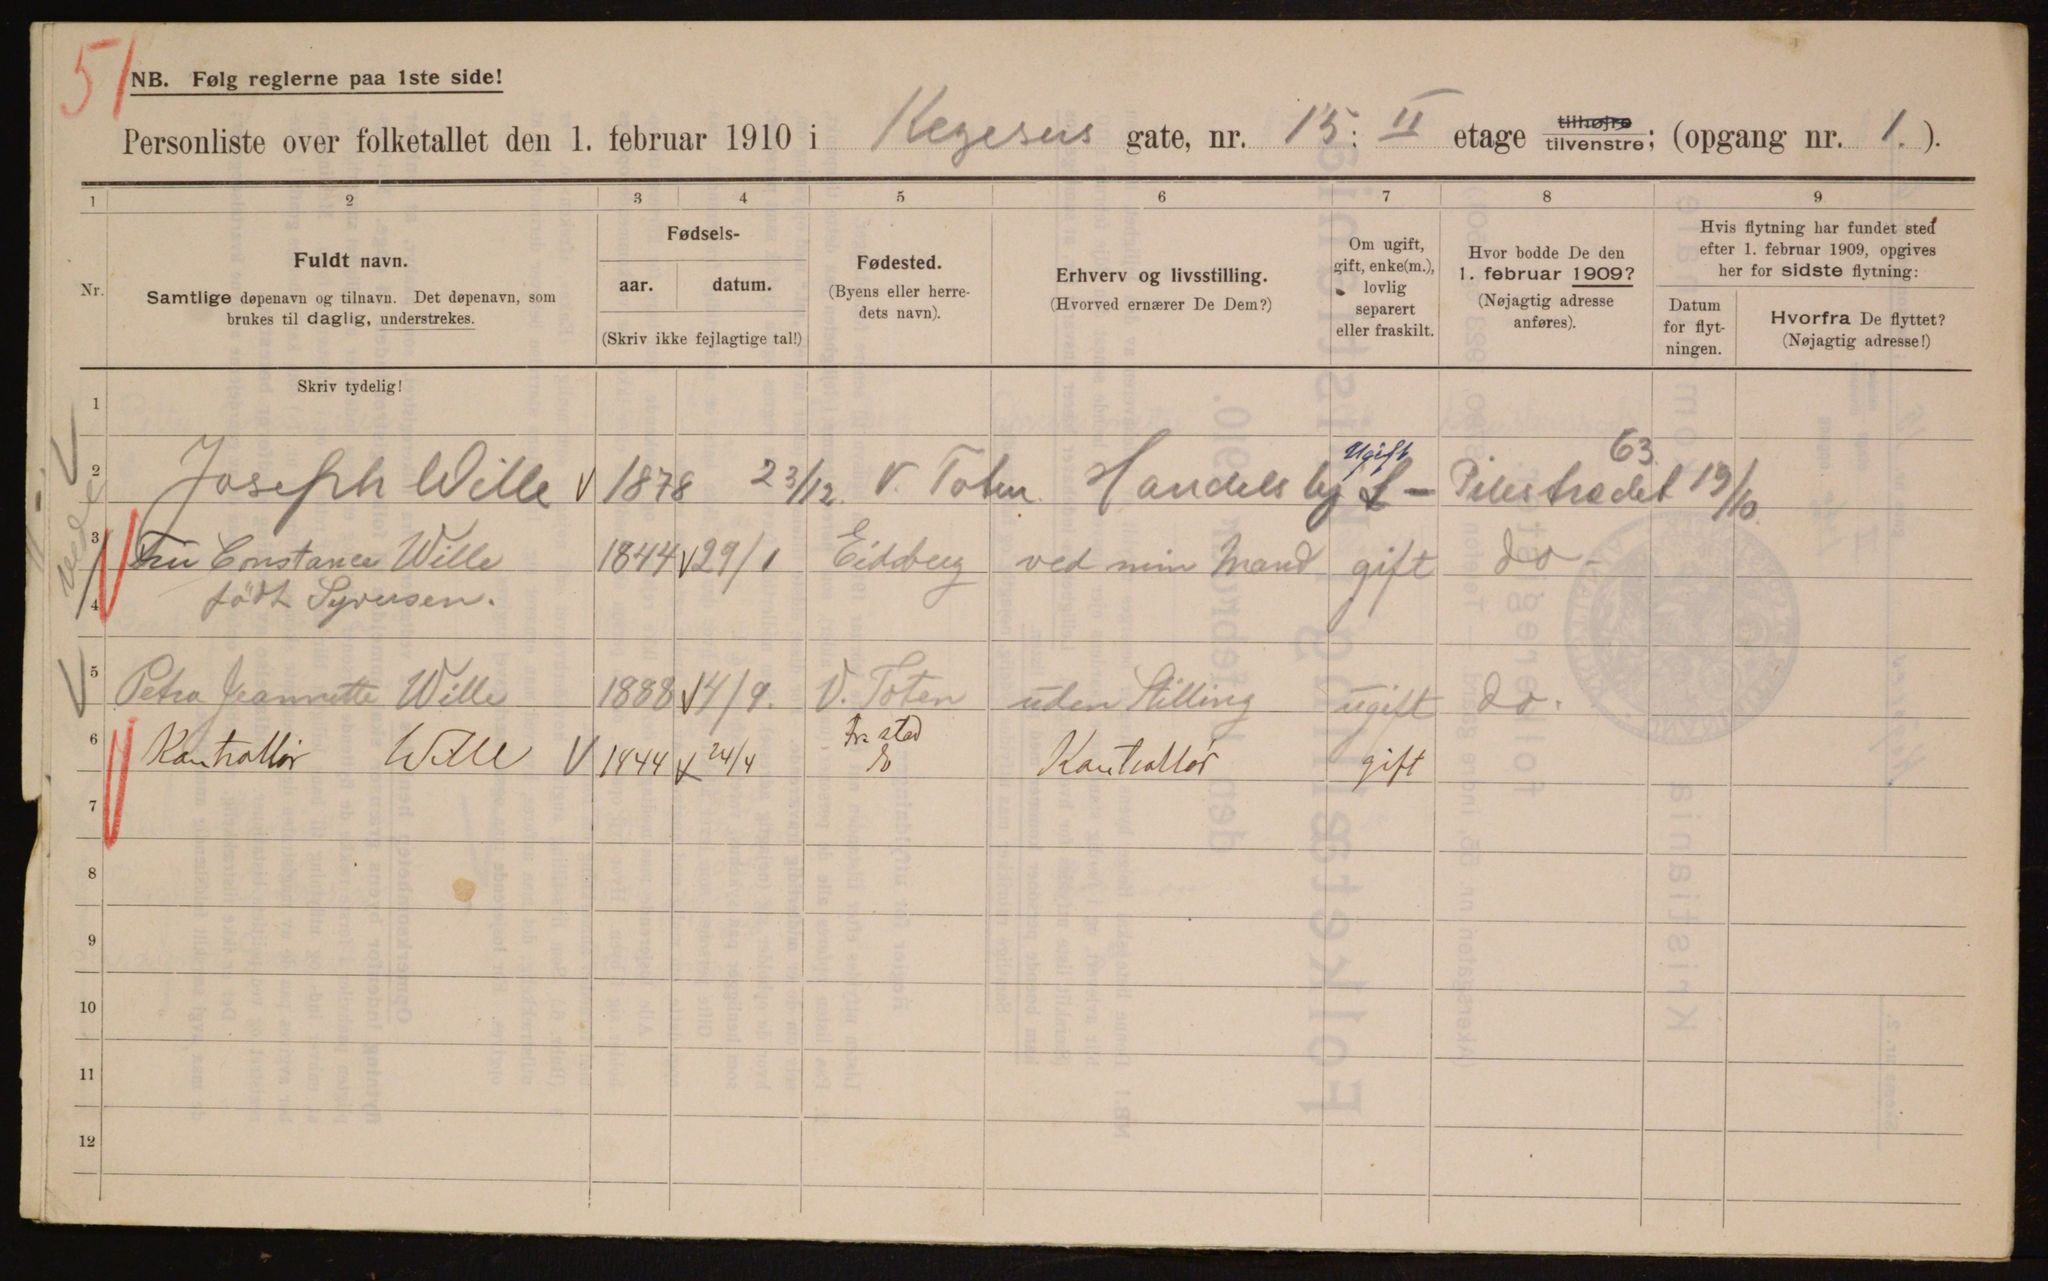 51
NB. Følg reglerne paa 1ste side!
Personliste over folketallet den 1. februar 1910 i Kegesens gate, nr. 15: II etage tilhøjre tilvenstre; (opgang nr. 1. ).
1 2 3 4 5 6 7 8 9
Nr.
Fuldt navn.
Samtlige døpenavn og tilnavn. Det døpenavn, som
brukes til daglig, understrekes.
Fødsels-
aar. datum.
(Skriv ikke fejlagtige tal!)
Fødested.
(Byens eller herre-
dets navn).
Erhverv og livsstilling.
(Hvorved ernærer De Dem?)
Om ugift,
gift, enke(m.),
lovlig
separert
eller fraskilt.
Hvor bodde De den
1. februar 1909?
(Nøjagtig adresse
anføres).
Hvis flytning har fundet sted
efter 1. februar 1909, opgives
her for sidste flytning:
Datum
for flyt-
ningen.
Hvorfra De flyttet?
(Nøjagtig adresse!)
Skriv tydelig!
1
2 Joseph Wille 1878 23/12 V. Toten Handels Ugift Pilestrædet 63 19/10
3 Fru Constance Wille 1844 29/1 Eidsberg ved min Mand gift do
4 født Syversen.
5 Petra Jeannette Wille 1888 14/9. V. Toten uden Stilling ugift do.
6 Kontrollør Wille 1844 24/4 Kontrollør gift
7
8
9
10
11
12